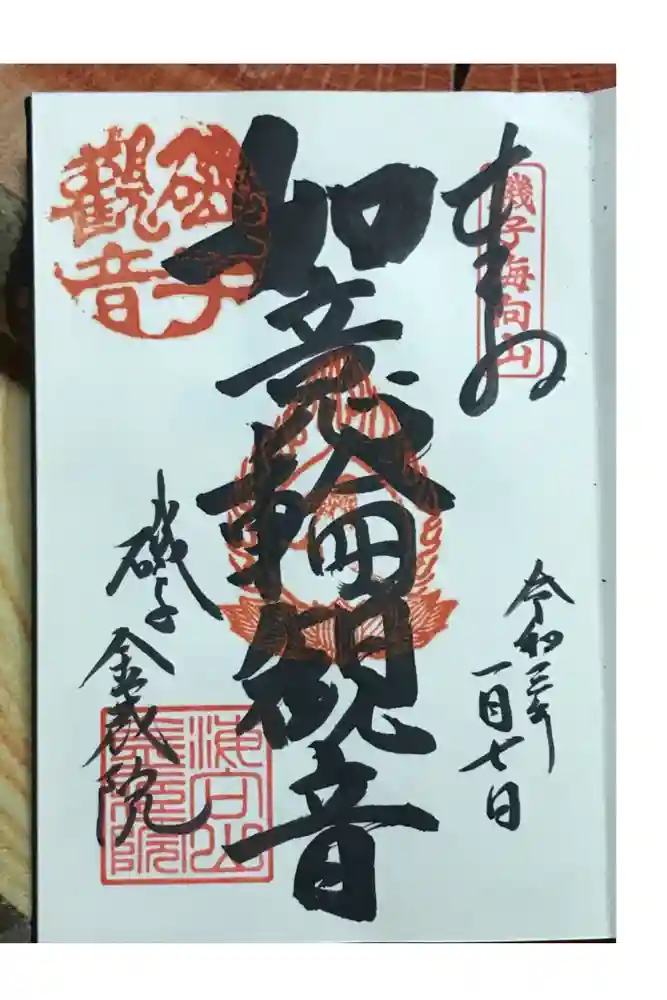 奉拝
磯子海向山
令和三年
一月七日
如意輪観音
磯子
觀音
磯子
金蔵院
海向山